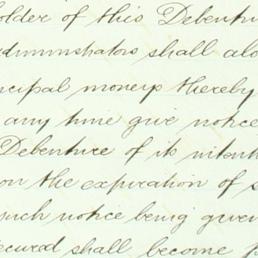 holder of this Debentur
dministrators shall alo
ncipal moneys thereby
any time give notice
Debenture of its intent
on the expiration of s
such notice being given
ecured shall become p